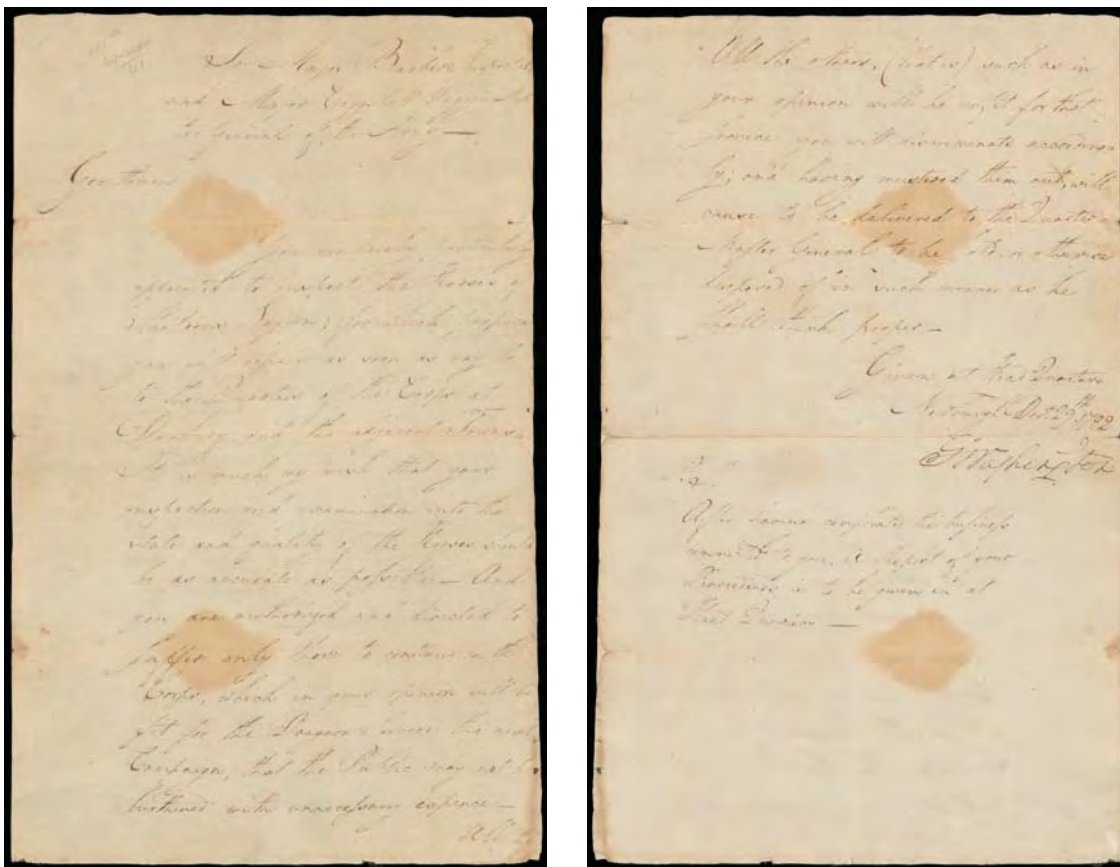 To Major Barber
and Major Inspect
tor General of the Army —
Gentlemen
You are hereby
appointed to inspect the Horses of
Legion; for which purpose
you will repair as soon as may be
to the Quarters of the Corps at
Danbury and the adjacent Towns.
It is much my wish that your
inspection and examination into the
state and quality of the Horses should
be as accurate as possible — And
you are authorized and directed to
suffer only those to continue in the
Corps, which in your opinion will be
fit for the Dragoon service the next
Campaign, that the Public may not be
burthened with unnecessary expence —
All the
All the others, (that is) such as in
your opinion will be unfit for that
service you will discriminate according
ly; and having mustered them out, will
cause to be delivered to the Quarter
Master General to be sold or otherwise
disposed of in such manner as he
shall think proper —
Given at Head Quarters
Newburgh Decr. 29th 1782
GWashington
After having completed the business
committed to you, a Report of your
Proceedings is to be given in at
Head Quarters —